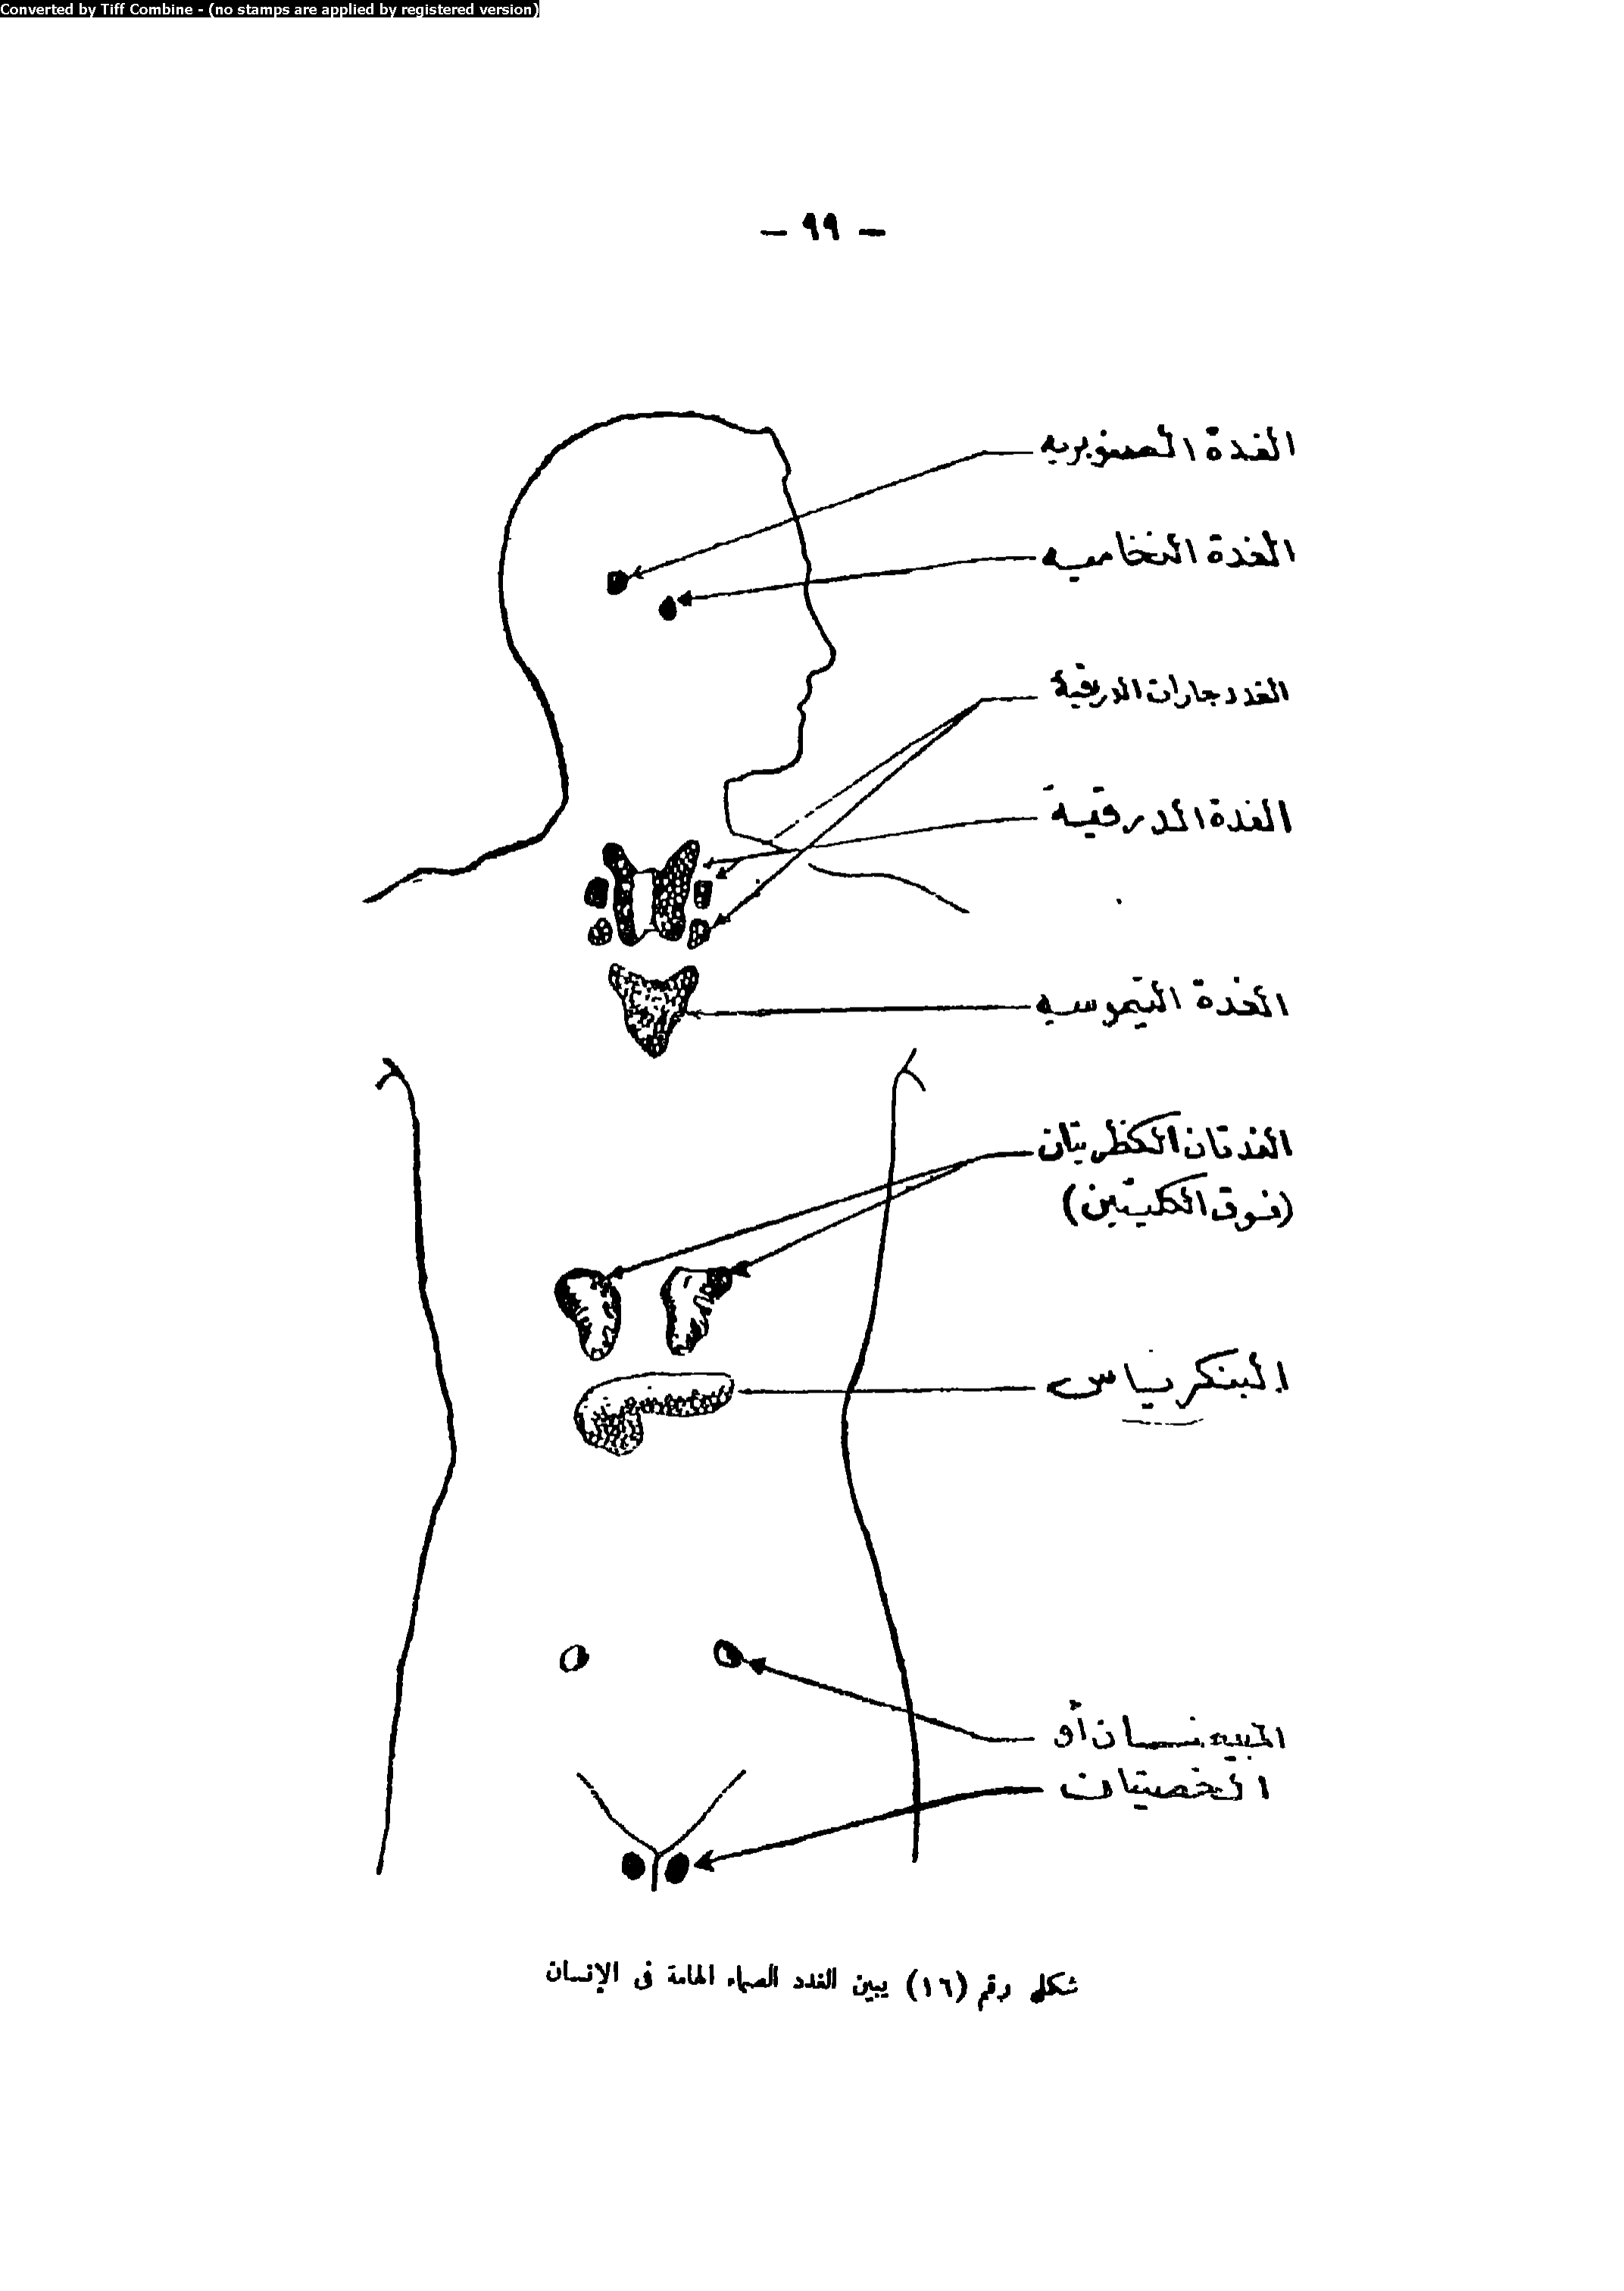 Converted by Tiff Combine - (no stamps are applied by registered version)
— ٩٩ —
الغدة الصنوبريه
الغدة النخاميه
الغدد جارات الدرقية
الغدة الدرقية
الغدة التيموسيه
الغدتان الكظريتان
(فوق الكليتين)
البنكرياس
المبيضان أو
الخصيتان
شكل رقم (١٦) يبين الغدد الصماء الهامة فى الإنسان